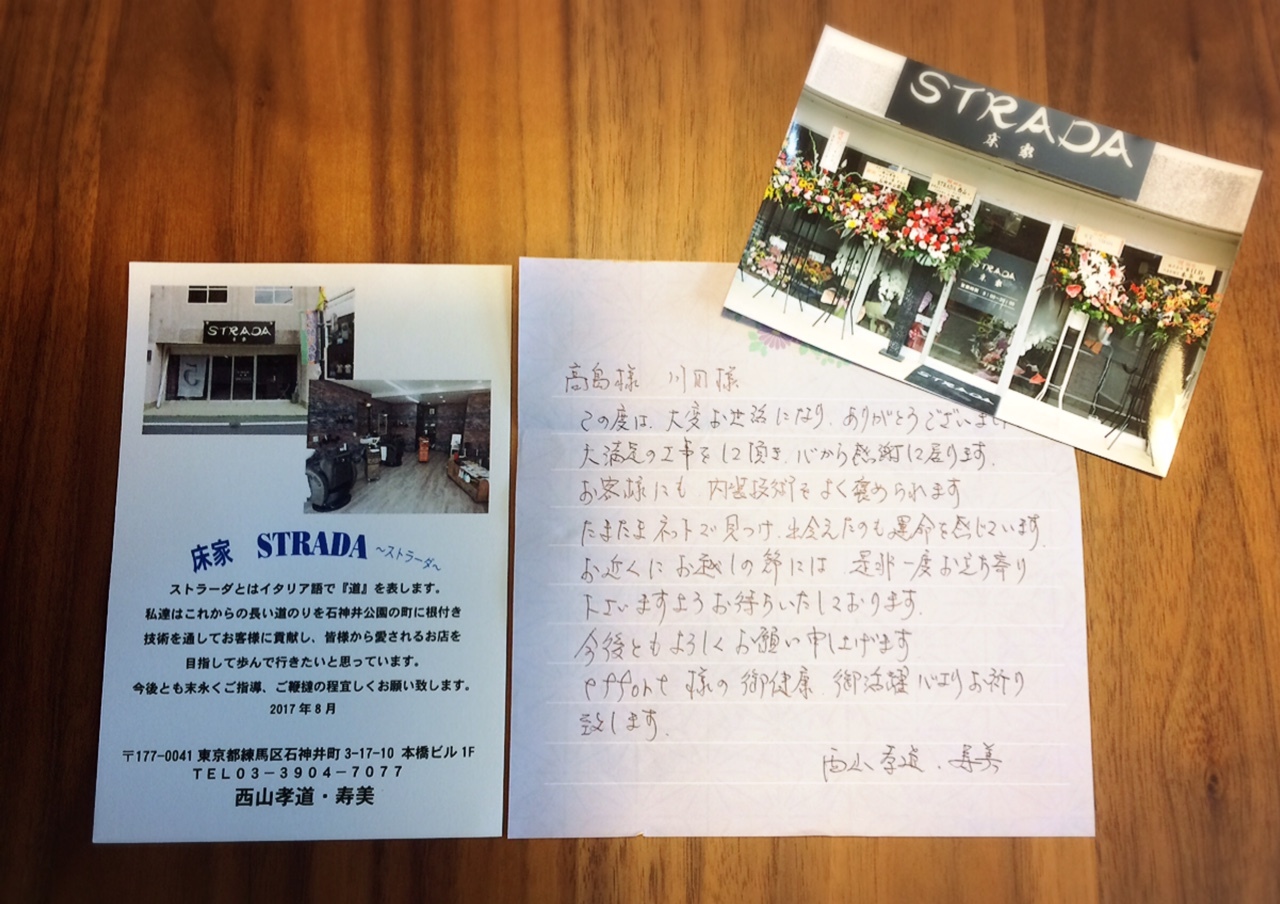 STRADA
床家
床家 STRADA ～ストラーダ～
ストラーダとはイタリア語で『道』を表します。
私達はこれからの長い道のりを石神井公園の町に根付き
技術を通してお客様に貢献し、皆様から愛されるお店を
目指して歩んで行きたいと思っています。
今後とも末永くご指導、ご鞭撻の程宜しくお願い致します。
2017年8月
〒177-0041 東京都練馬区石神井町3-17-10 本橋ビル1F
TEL03-3904-7077
西山孝道・寿美
高島様 川口様
この度は、大変お世話になり、ありがとうございまし
大満足の工事をして頂き、心から感謝して居ります。
お客様にも 内装技術をよく褒められます
たまたまネットで見つけ、出会えたのも運命を感じています。
お近くにお越しの節には 是非一度お立ち寄り
下さいますようお待ちいたしております。
今後ともよろしくお願い申し上げます
effort 様の御健康、御活躍心よりお祈り
致します。
西山孝道・寿美
STRADA
床家
STRADA
床家
STRADA